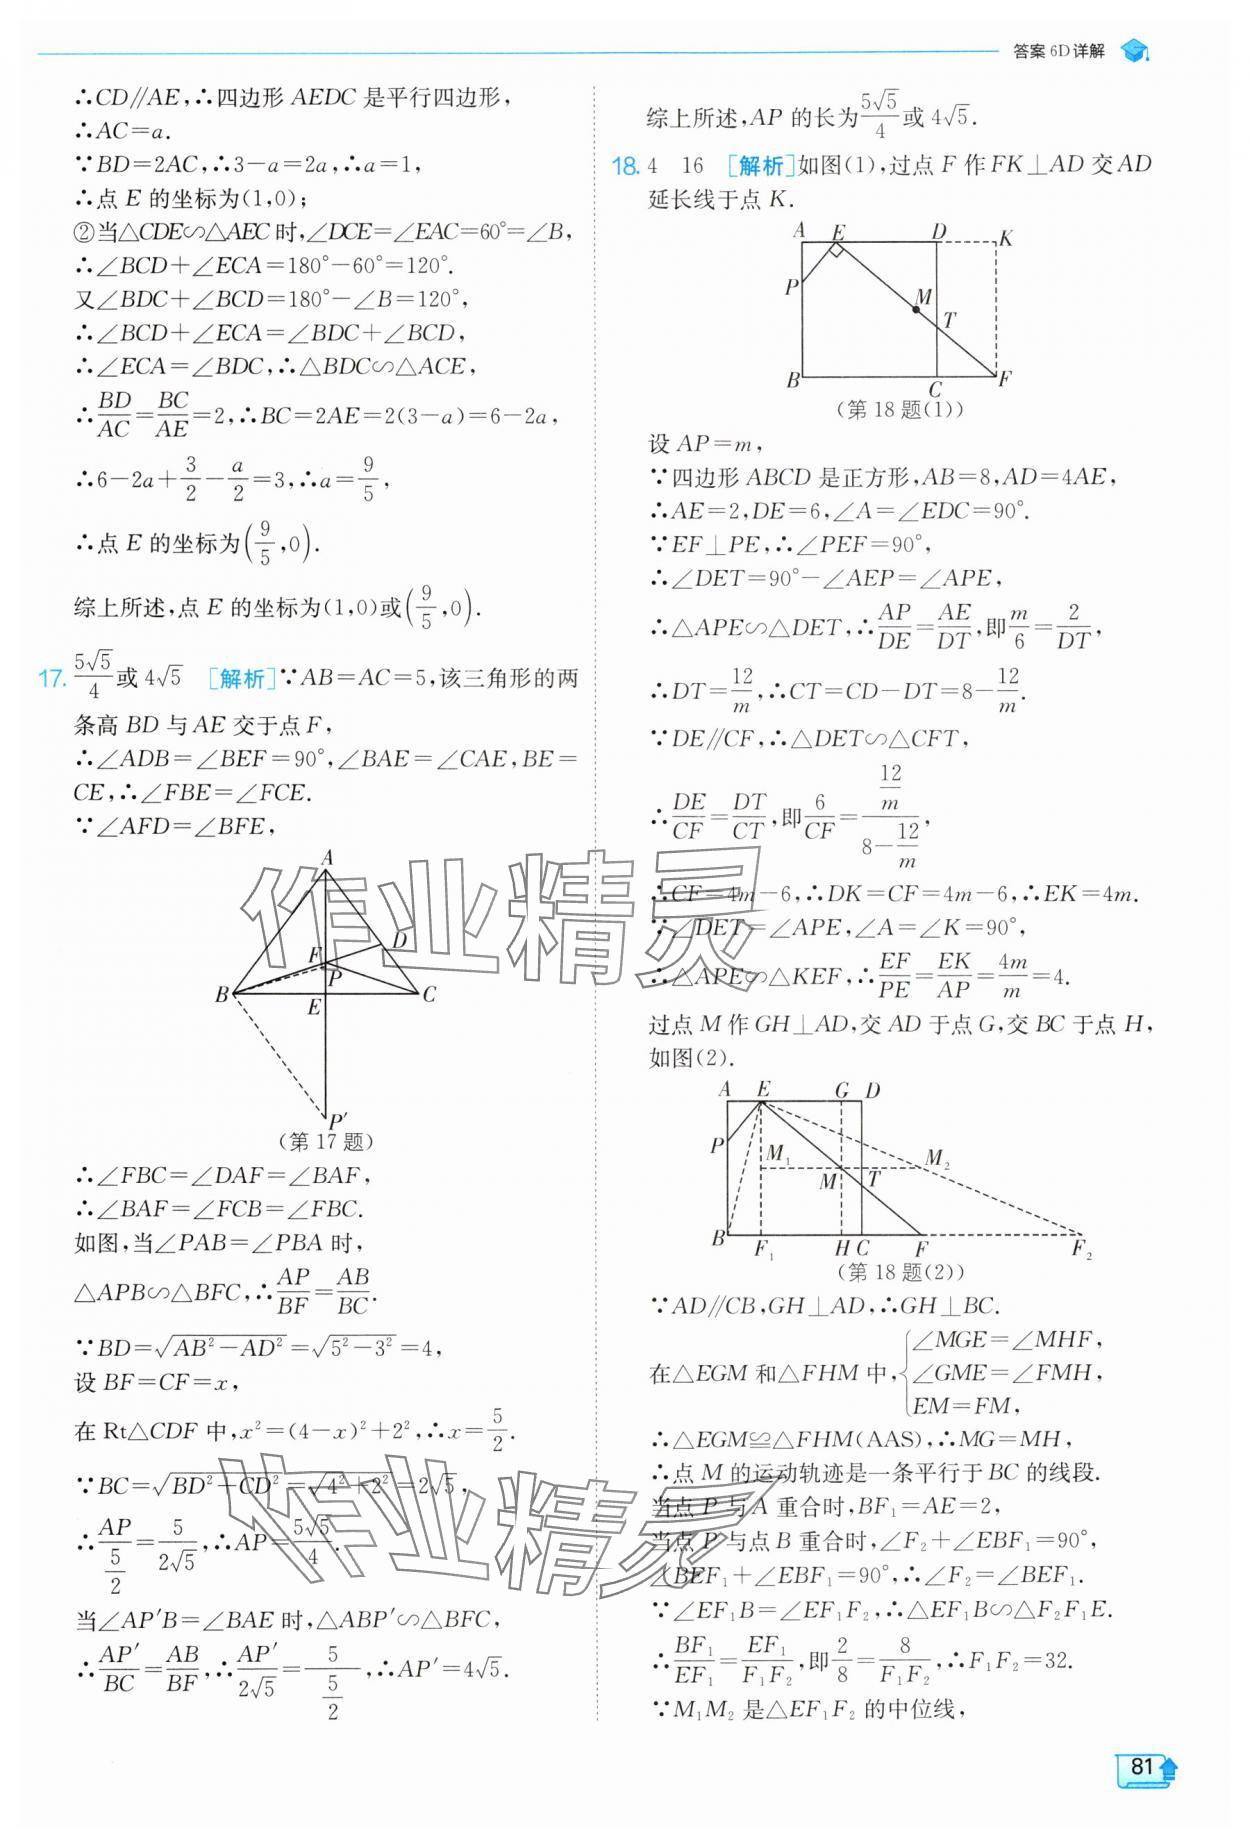 答案 6D 详解
∴CD∥AE,∴四边形 AEDC 是平行四边形,
∴AC=a.
∵BD=2AC,∴3-a=2a,∴a=1,
∴点 E 的坐标为(1,0);
②当△CDE∽△AEC 时,∠DCE=∠EAC=60°=∠B,
∴∠BCD+∠ECA=180°-60°=120°.
又∠BDC+∠BCD=180°-∠B=120°,
∴∠BCD+∠ECA=∠BDC+∠BCD,
∴∠ECA=∠BDC,∴△BDC∽△ACE,
∴BD/AC=BC/AE=2,∴BC=2AE=2(3-a)=6-2a,
∴6-2a+3/2-a/2=3,∴a=9/5,
∴点 E 的坐标为(9/5,0).
综上所述,点 E 的坐标为(1,0)或(9/5,0).
17. 5√5/4或 4√5 [解析]∵AB=AC=5,该三角形的两
条高 BD 与 AE 交于点 F,
∴∠ADB=∠BEF=90°,∠BAE=∠CAE,BE=
CE,∴∠FBE=∠FCE.
∵∠AFD=∠BFE,
A
D
F
P
B
E
C
P′
(第 17 题)
∴∠FBC=∠DAF=∠BAF,
∴∠BAF=∠FCB=∠FBC.
如图,当∠PAB=∠PBA 时,
△APB∽△BFC,∴AP/BF=AB/BC.
∵BD=√(AB²-AD²)=√(5²-3²)=4,
设 BF=CF=x,
在 Rt△CDF 中,x²=(4-x)²+2²,∴x=5/2.
∵BC=√(BD²+CD²)=√(4²+2²)=2√5,
∴AP/(5/2)=5/(2√5),∴AP=5√5/4.
当∠AP′B=∠BAE 时,△ABP′∽△BFC,
∴AP′/BC=AB/BF,∴AP′/(2√5)=5/(5/2),∴AP′=4√5.
综上所述,AP 的长为5√5/4或 4√5.
18. 4 16 [解析]如图(1),过点 F 作 FK⊥AD 交 AD
延长线于点 K.
A E D K
P
M
T
B C F
(第 18 题(1))
设 AP=m,
∵四边形 ABCD 是正方形,AB=8,AD=4AE,
∴AE=2,DE=6,∠A=∠EDC=90°.
∵EF⊥PE,∴∠PEF=90°,
∴∠DET=90°-∠AEP=∠APE,
∴△APE∽△DET,∴AP/DE=AE/DT,即m/6=2/DT,
∴DT=12/m,∴CT=CD-DT=8-12/m.
∵DE∥CF,∴△DET∽△CFT,
∴DE/CF=DT/CT,即6/CF=(12/m)/(8-12/m),
∴CF=4m-6,∴DK=CF=4m-6,∴EK=4m.
∵∠DET=∠APE,∠A=∠K=90°,
∴△APE∽△KEF,∴EF/PE=EK/AP=4m/m=4.
过点 M 作 GH⊥AD,交 AD 于点 G,交 BC 于点 H,
如图(2).
A E G D
P
M₁ M₂
M T
B F₁ H C F F₂
(第 18 题(2))
∵AD∥CB,GH⊥AD,∴GH⊥BC.
在△EGM 和△FHM 中,{∠MGE=∠MHF,
∠GME=∠FMH,
EM=FM,
∴△EGM≌△FHM(AAS),∴MG=MH,
∴点 M 的运动轨迹是一条平行于 BC 的线段.
当点 P 与 A 重合时,BF₁=AE=2,
当点 P 与点 B 重合时,∠F₂+∠EBF₁=90°,
∠BEF₁+∠EBF₁=90°,∴∠F₂=∠BEF₁.
∵∠EF₁B=∠EF₁F₂,∴△EF₁B∽△F₂F₁E.
∴BF₁/EF₁=EF₁/F₁F₂,即2/8=8/F₁F₂,∴F₁F₂=32.
∵M₁M₂ 是△EF₁F₂ 的中位线,
作业精灵
作业精灵
81